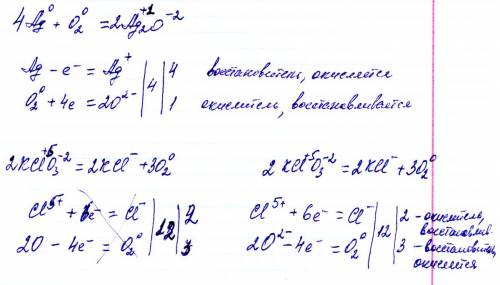 4Ag⁰ + O₂⁰ = 2Ag₂⁺¹O⁻²
Ag - e⁻ = Ag⁺ | 4 | 4 восстановитель, окисляется
O₂⁰ + 4e = 2O²⁻ | 4 | 1 окислитель, восстанавливается
2KCl⁺⁵O₃⁻² = 2KCl⁻ + 3O₂⁰
Cl⁵⁺ + 6e⁻ = Cl⁻ | 12 | 2
2O - 4e⁻ = O₂⁰ | 12 | 3
2KCl⁺⁵O₃⁻² = 2KCl⁻ + 3O₂⁰
Cl⁵⁺ + 6e⁻ = Cl⁻ | 12 | 2 - окислитель, восстановлив.
2O²⁻ - 4e⁻ = O₂⁰ | 12 | 3 - восстановитель, окисляется